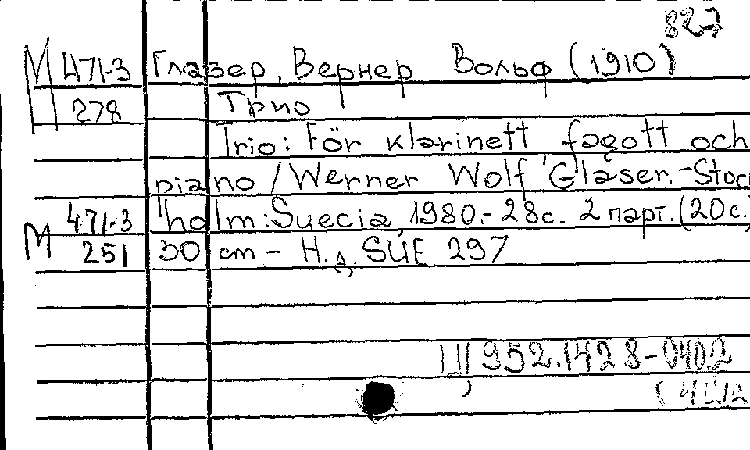 827
М 471-3 Глазер, Вернер Вольф (1910)
278 Трио
Trio: För klarinett fagott och
piano / Werner Wolf Glaser. - Stock
471-3 holm: Suecia, 1980. - 28с. 2 парт. (20с)
М 251 30 cm - Н. д. SUE 297
Щ 952.1428-0402